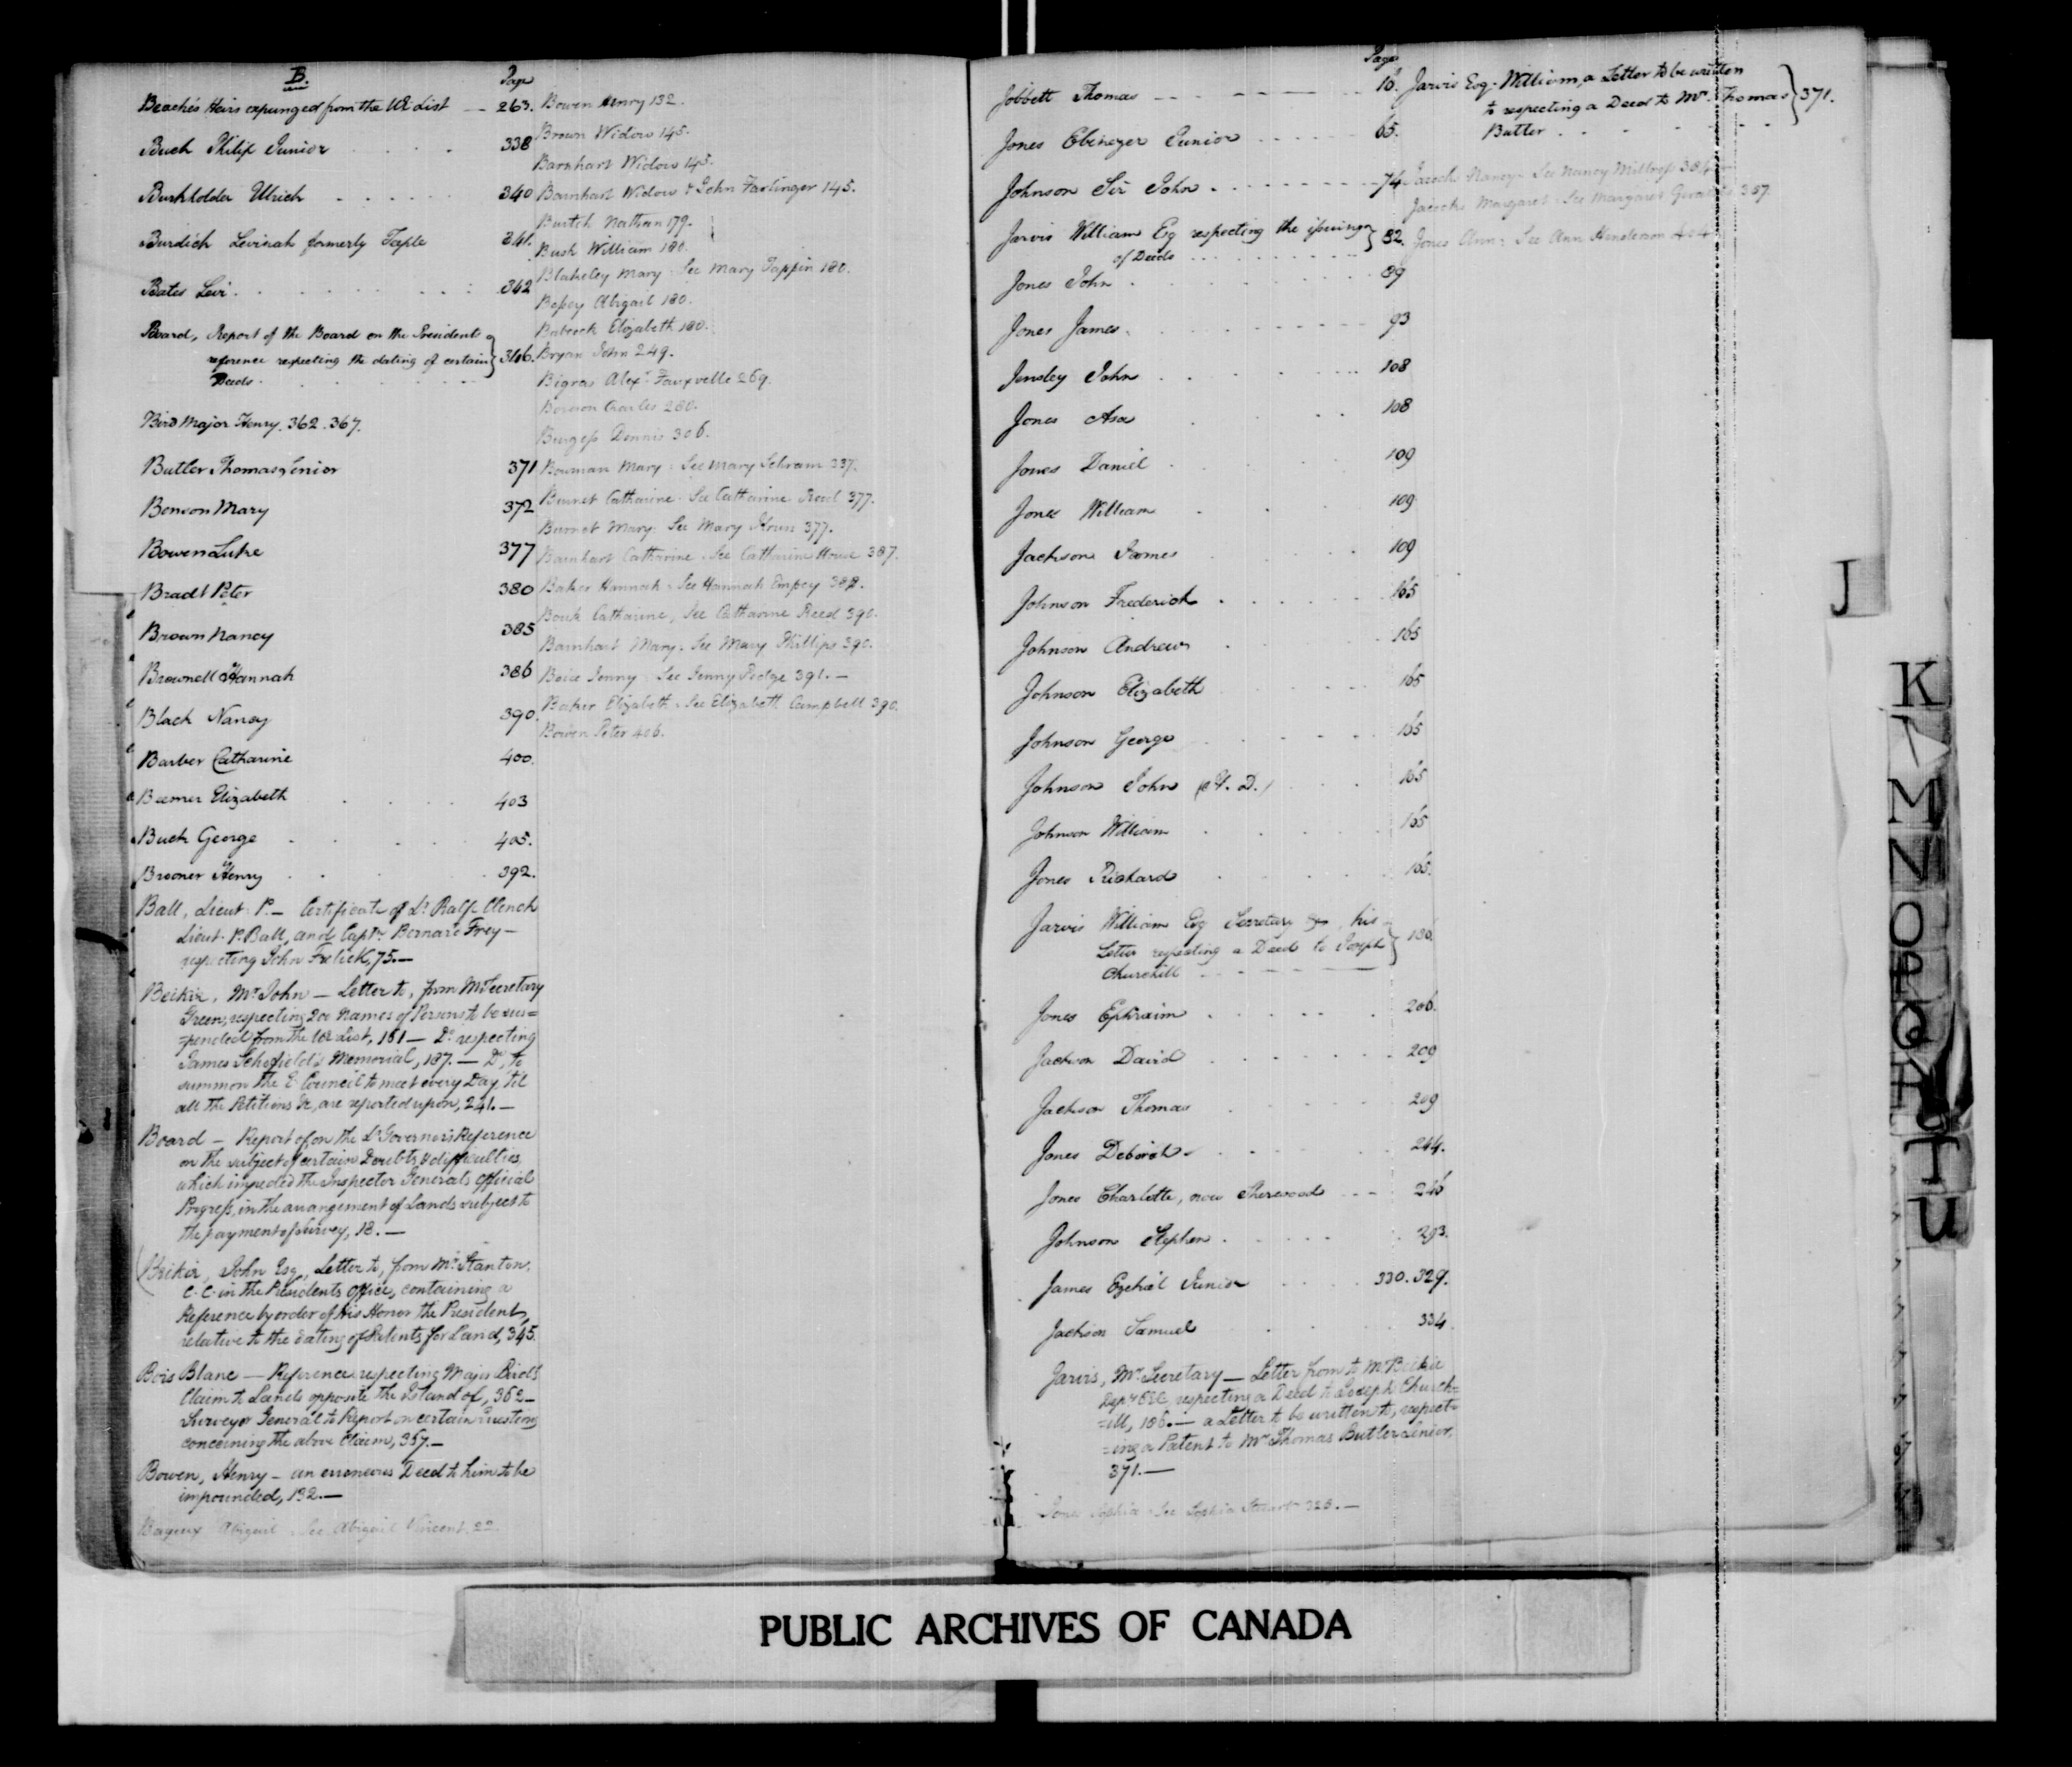 B.
Page
Beache's Heirs expunged from the UE List 263.
Buck Philip Junior 338
Burkholder Ulrich 340
Burdick Levinah formerly Taple 341.
Bates Levi 342
Board, Report of the Board on the Presidents
reference respecting the dating of certain 346.
Deeds
Bird Major Henry. 362. 367.
Butler Thomas Senior 371
Benson Mary 372
Bowen Luke 377
Bradt Peter 380
Brown Nancy 385
Brownell Hannah 386
Black Nancy 390.
Barber Catharine 400.
Beemer Elizabeth 403
Buck George 405.
Brooner Henry 392.
Ball, Lieut. P. — Certificate of Lt. Ralf Clench
Lieut. P. Ball, and Captn. Bernard Frey —
respecting John Frelick, 75. —
Beikie, Mr. John — Letter to, from Mr. Secretary
Green, respecting 200 Names of Persons to be sus=
=pended from the UE List, 161 — Do. respecting
James Schofield's Memorial, 187. — Do. to
summon the E. Council to meet every Day, 'til
all the Petitions &c, are reported upon, 241. —
Board — Report of on the Lt. Governor's Reference
on the subject of certain Doubts & difficulties,
which impeded the Inspector General's official
Progress, in the arrangement of Lands subject to
the payment of Survey, 18. —
Beikie, John Esq., Letter to, from Mr. Stanton,
C. C. in the Presidents Office, containing a
Reference by order of His Honor the President,
relative to the dating of Patents for Land, 345.
Bois Blanc — Reference respecting Major Bird's
Claim to Lands opposite the Island of, 362 —
Surveyor General to Report on certain Questions
concerning the above Claim, 367. —
Bowen, Henry — an erroneous Deed to him to be
impounded, 132. —
Abigail See Abigail Vincent, 22
Bowen Henry 132.
Brown Widow 145.
Barnhart Widow 145.
Barnhart Widow & John Farlinger 145.
Burtch Nathan 179.
Bush William 180.
Blakeley Mary. See Mary Tappin 180.
Bessey Abigail 180.
Babcock Elizabeth 180.
Bryan John 249.
Bigras Alexr. Fauxvelle 269.
Charles 280.
Burgess Dennis 306.
Bowman Mary. See Mary Schram 337.
Burnet Catharine. See Catharine Reed 377.
Burnet Mary. See Mary 377.
Barnhart Catharine. See Catharine House 387.
Baker Hannah. See Hannah Empey 388.
Bouk Catharine, See Catharine Reed 390.
Barnhart Mary. See Mary Phillips 390.
Boice Jenny See Jenny 391. —
Baker Elizabeth. See Elizabeth Campbell 390.
Bowen Peter 406.
Page
Jobbett Thomas 16.
Jones Ebenezer Junior 65.
Johnson Sir John 74
Jarvis William Esq respecting the issuing 82.
of Deeds
Jones John 89
Jones James 93
Jonsley John 108
Jones Asa 108
Jones Daniel 109
Jones William 109
Jackson James 109
Johnson Frederick 165
Johnson Andrew 165
Johnson Elizabeth 165
Johnson George 165
Johnson John 165
Johnson William 165
Jones Richard 165.
Jarvis William Esq Secretary &c, his
Letter respecting a Deed to Joseph 186.
Churchill
Jones Ephraim 206.
Jackson David 209
Jackson Thomas 209
Jones Deborah 244.
Jones Charlotte, now Sherwood 246
Johnson Stephen 293.
James Ezekiel Junior 330. 329.
Jackson Samuel 334
Jarvis, Mr. Secretary — Letter from to Mr. Beikie
respecting a Deed to Joseph Church=
=ill, 186. — a Letter to be written to, respect=
=ing a Patent to Mr. Thomas Butler Senior,
371. —
Jones Sophia See Sophia Stuart 325. —
Jarvis Esq. William, a Letter to be written
to respecting a Deed to Mr. Thomas 371.
Butler
Nancy. See Nancy 384
Jacocks Margaret. See Margaret 387.
Jones Ann. See Ann Henderson 404
J
K
M
N
O
P
Q
T
U
PUBLIC ARCHIVES OF CANADA